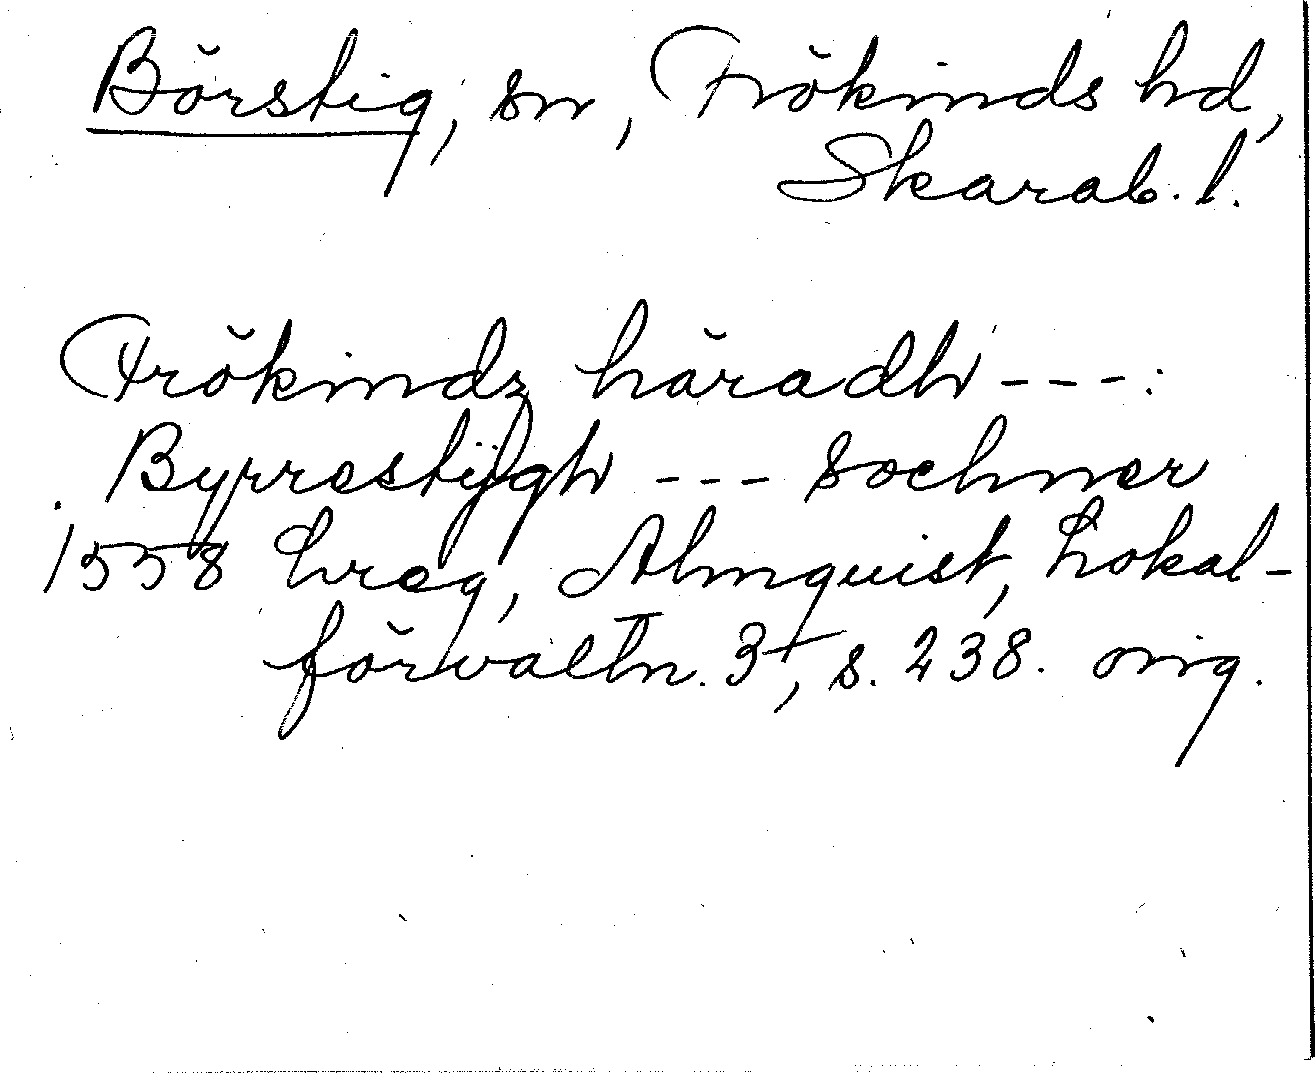 Börstig, sn, Frökinds hd,
Skarab. l.
Frökindz häradh ---:
Byrrestijgh --- sochner
1558 Lreg, Almquist, Lokal-
förvaltn. 3, s. 238. orig.